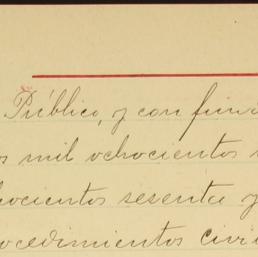 Público, y con fun
os mil ochocientos
hocientos sesenta y
ocedimientos civi